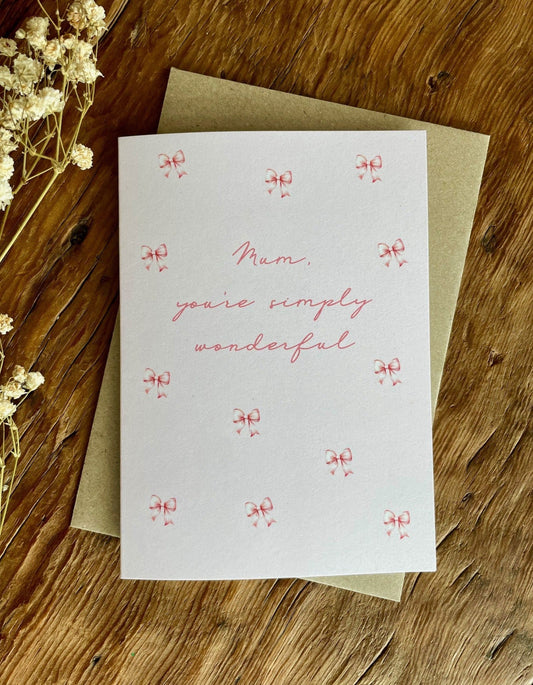 Mum,
you're simply
wonderful